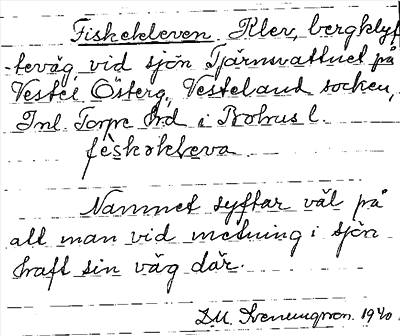 Fiskekleven. Klev, bergklyf
teväg, vid sjön Tjärnsvattnet på
Vestel Österg, Vesteland socken,
Inl. Torpe hrd i Bohus l.
fèskəkleva
Namnet syftar väl på
att man vid metning i sjön
haft sin väg där.
1940